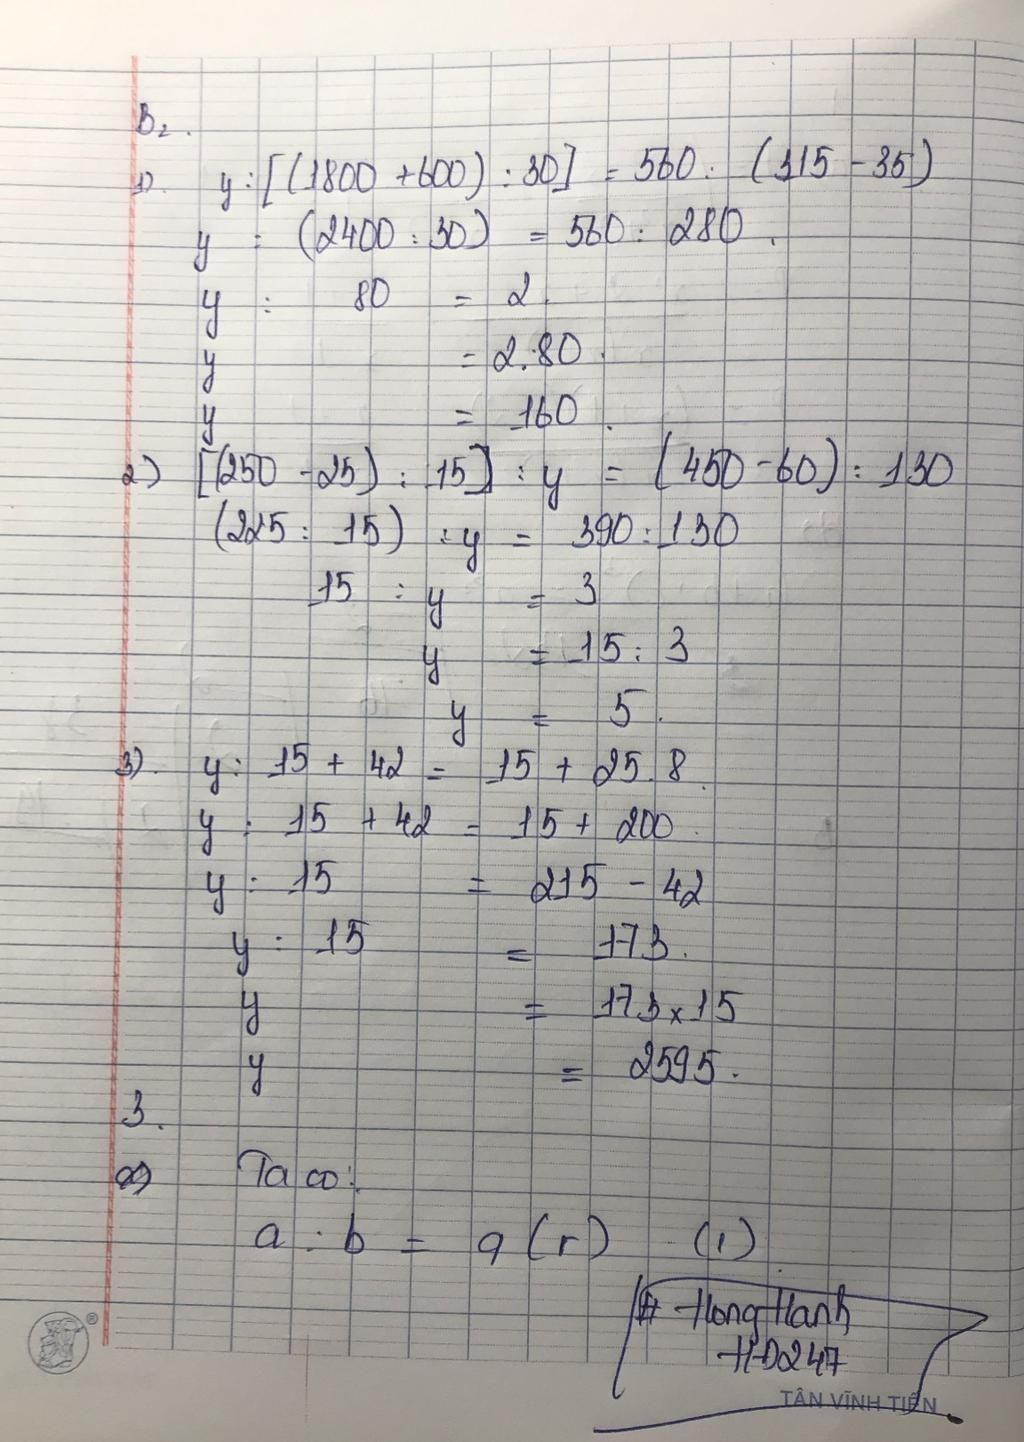 B2.
1). y : [(1800 + 600) : 30] = 560 : (315 - 35)
y : (2400 : 30) = 560 : 280.
y : 80 = 2.
y = 2.80.
y = 160.
2) [(250 - 25) : 15] : y = (450 - 60) : 130
(225 : 15) : y = 390 : 130
15 : y = 3
y = 15 : 3
y = 5.
3). y : 15 + 42 = 15 + 25.8.
y : 15 + 42 = 15 + 200.
y : 15 = 215 - 42
y : 15 = 173.
y = 173 x 15
y = 2595.
3.
a) Ta co:
a : b = q (r) (1)
# HongHanh
HD247
TÂN VĨNH TIẾN